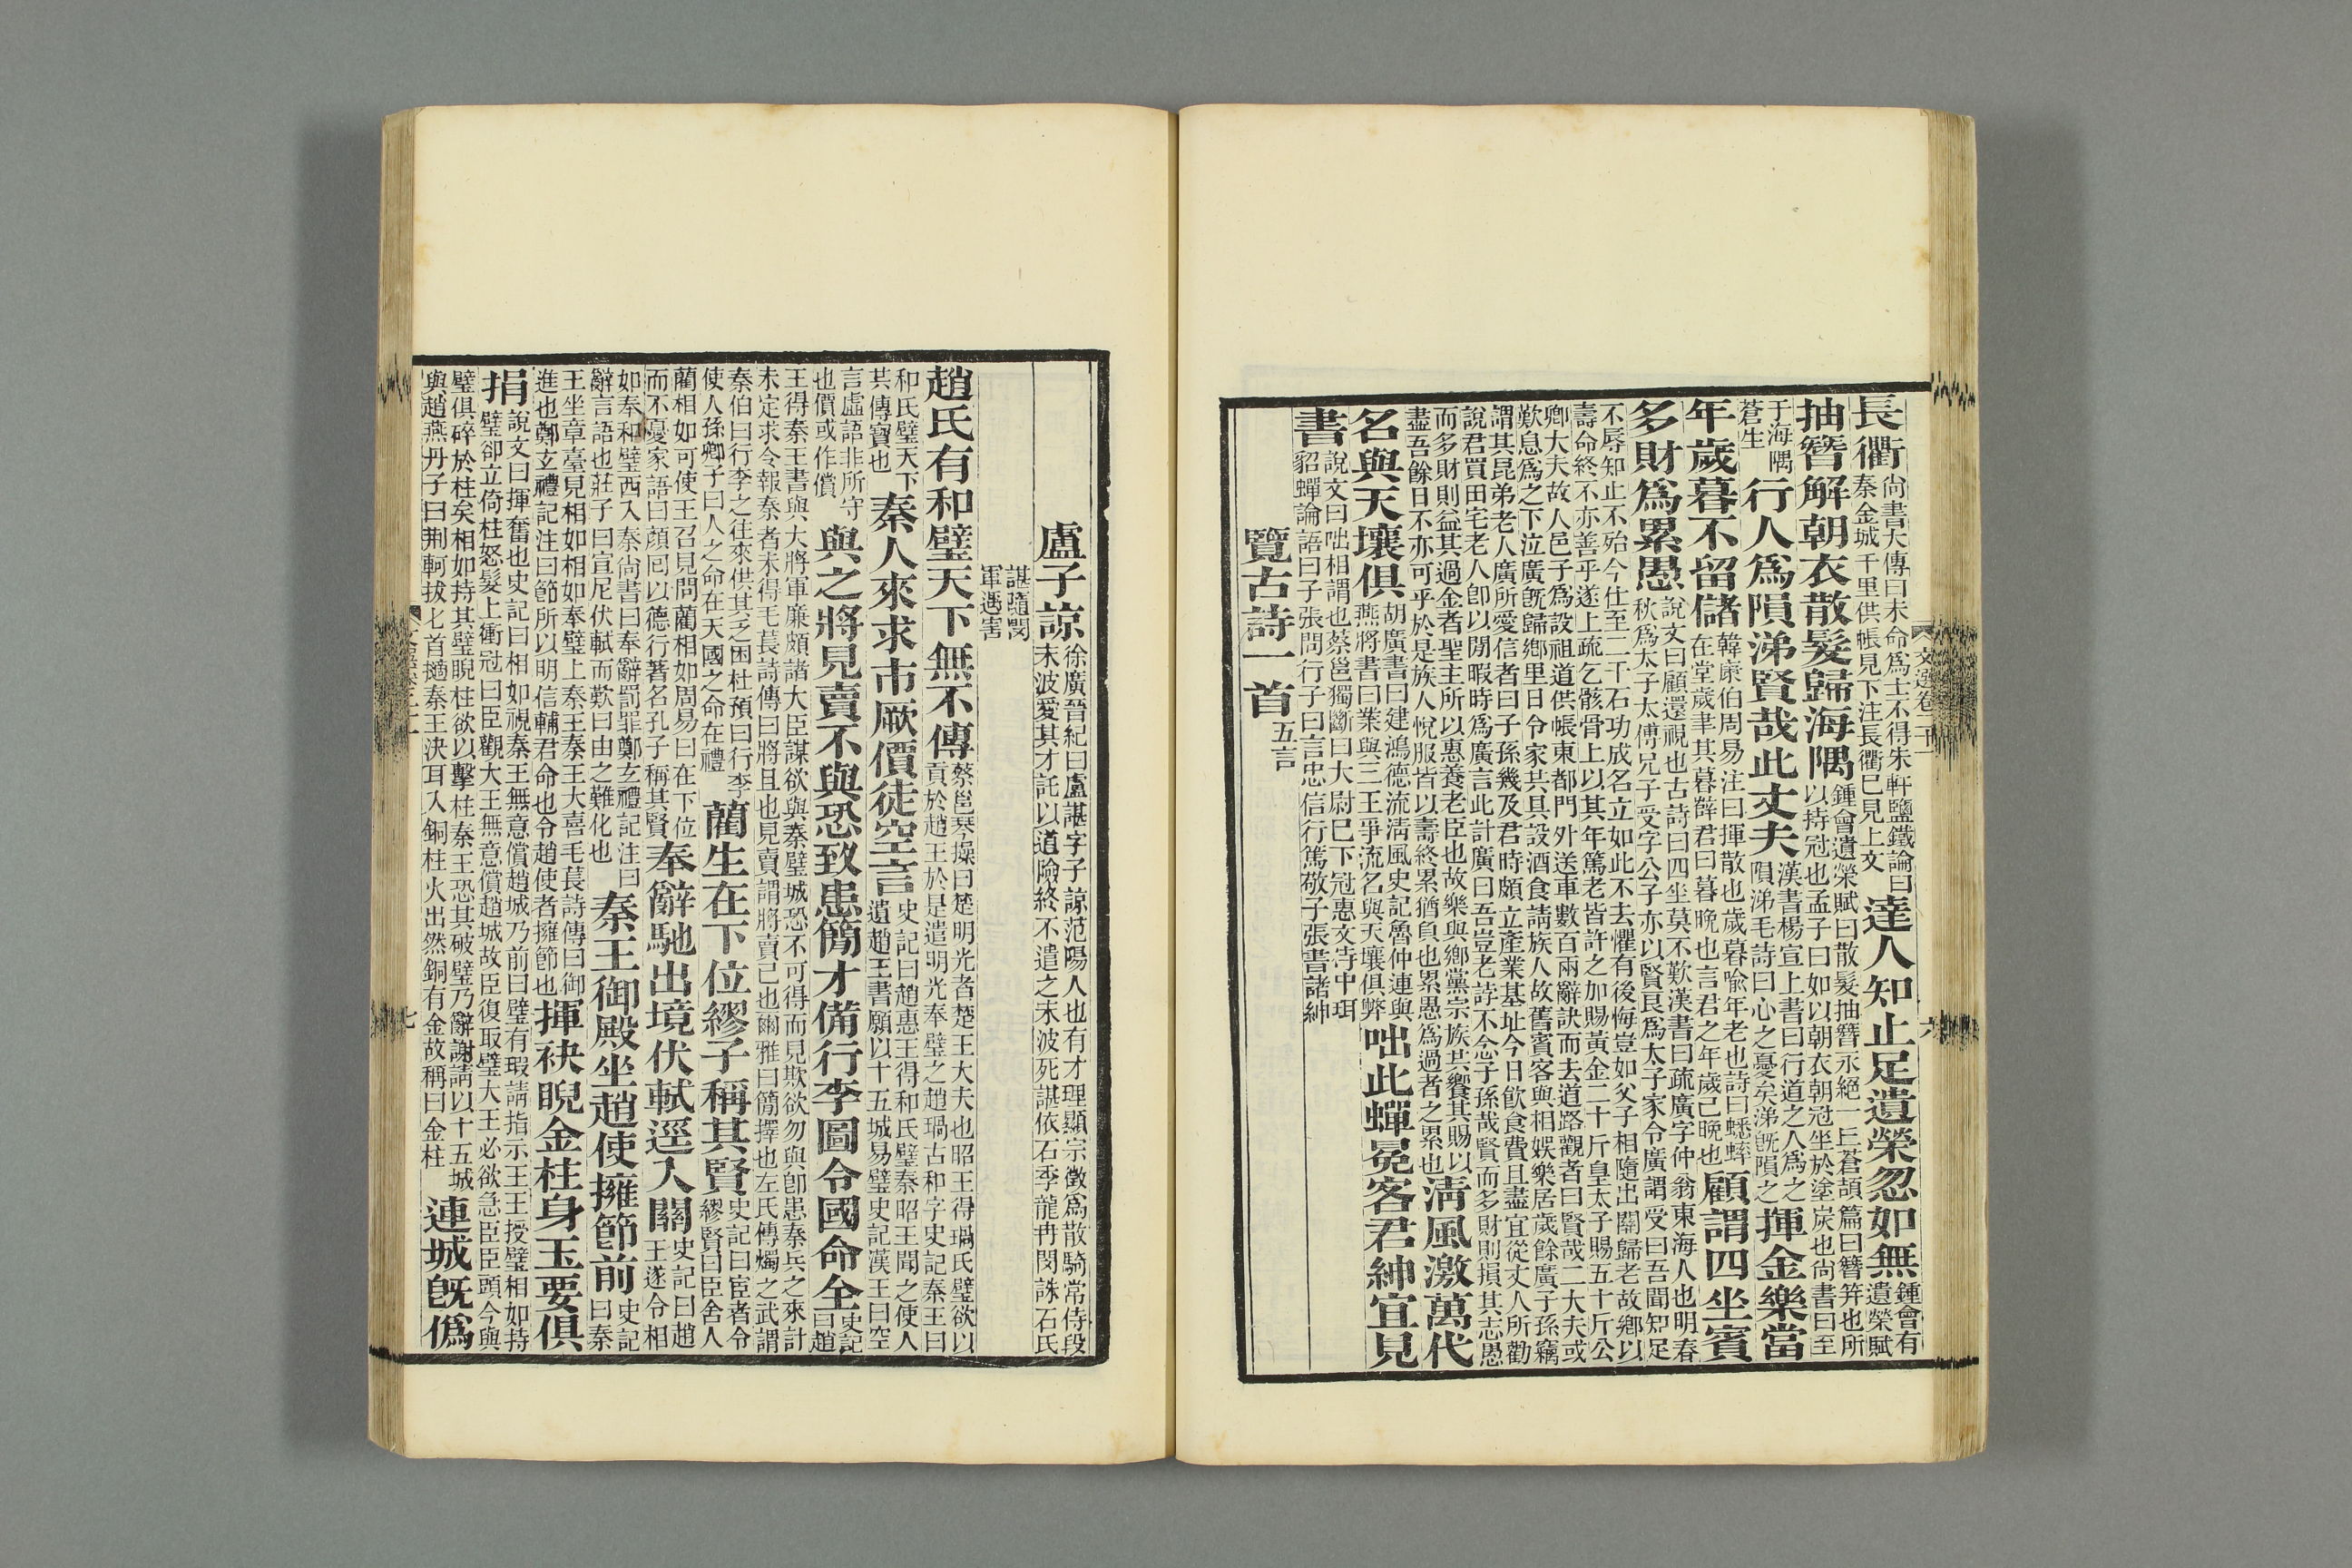 長衢
尚書大傳曰未命爲士不得朱軒鹽鐵論曰
秦金城千里供帳見下注長衢巳見上文
達人知止足遺榮忽如無
鍾會有
遺榮賦
抽簪解朝衣散髮歸海隅
鍾會遺榮賦曰散髮抽簪永絕一丘蒼頡篇曰簪笄也所
以持冠也孟子曰如以朝衣朝冠坐於塗炭也尚書曰至
于海隅
蒼生
行人爲隕涕賢哉此丈夫
漢書楊宣上書曰行道之人爲之
隕涕毛詩曰心之憂矣涕旣隕之
揮金樂當
年歲暮不留儲
韓康伯周易注曰揮散也歲暮喩年老也詩曰蟋蟀
在堂歲聿其暮薛君曰暮晚也言君之年歲已晚也
顧謂四坐賓
多財爲累愚
說文曰顧還視也古詩曰四坐莫不歎漢書曰疏廣字仲翁東海人也明春
秋爲太子太傅兄子受字公子亦以賢良爲太子家令廣謂受曰吾聞知足
不辱知止不殆今仕至二千石功成名立如此不去懼有後悔豈如父子相隨出關歸老故鄉以
壽命終不亦善乎遂上疏乞骸骨上以其年篤老皆許之加賜黃金二十斤皇太子賜五十斤公
卿大夫故人邑子爲設祖道供帳東都門外送車數百兩辭訣而去道路觀者曰賢哉二大夫或
歎息爲之下泣廣旣歸鄉里日令家共具設酒食請族人故舊賓客與相娛樂居歲餘廣子孫竊
謂其昆弟老人廣所愛信者曰子孫幾及君時頗立產業基址今日飮食費且盡宜從丈人所勸
說君買田宅老人卽以閒暇時爲廣言此計廣曰吾豈老誖不念子孫哉賢而多財則損其志愚
而多財則益其過金者聖主所以惠養老臣也故樂與鄉黨宗族共饗其賜以
盡吾餘日不亦可乎於是族人悅服皆以壽終累猶負也累愚爲過者之累也
淸風激萬代
名與天壤俱
胡廣書曰建鴻德流淸風史記魯仲連與
燕將書曰業與三王爭流名與天壤俱弊
咄此蟬冕客君紳宜見
書
說文曰咄相謂也蔡邕獨斷曰大尉已下冠惠文侍中珥
貂蟬論語曰子張問行子曰言忠信行篤敬子張書諸紳
覽古詩一首五言
文選卷二十一
六
盧子諒
徐廣晉紀曰盧諶字子諒范陽人也有才理顯宗徵爲散騎常侍段
末波愛其才託以道險終不遣之末波死諶依石季龍冉閔誅石氏
諶隨閔
軍遇害
趙氏有和璧天下無不傳
蔡邕琴操曰楚明光者楚王大夫也昭王得瑀氏璧欲以
貢於趙王於是遣明光奉璧之趙瑀古和字史記秦王曰
和氏璧天下
共傳寶也
秦人來求市厥價徒空言
史記曰趙惠王得和氏璧秦昭王聞之使人
遺趙王書願以十五城易璧史記漢王曰空
言虛語非所守
也價或作償
與之將見賣不與恐致患簡才備行李圖令國命全
史記
曰趙
王得秦王書與大將軍廉頗諸大臣謀欲與秦璧城恐不可得而見欺欲勿與卽患秦兵之來計
未定求令報秦者未得毛萇詩傳曰將且也見賣謂將賣己也爾雅曰簡擇也左氏傳燭之武謂
秦伯曰行李之往來供其乏困杜預曰行李
使人孫卿子曰人之命在天國之命在禮
藺生在下位繆子稱其賢
史記曰宦者令
繆賢曰臣舍人
藺相如可使王召見問藺相如周易曰在下位
而不憂家語曰顏回以德行著名孔子稱其賢
奉辭馳出境伏軾逕入關
史記曰趙
王遂令相
如奉和璧西入秦尚書曰奉辭罰罪鄭玄禮記注曰
辭言語也莊子曰宣尼伏軾而歎曰由之難化也
秦王御殿坐趙使擁節前
史記
曰秦
王坐章臺見相如相如奉璧上秦王秦王大喜毛萇詩傳曰御
進也鄭玄禮記注曰節所以明信輔君命也令趙使者擁節也
揮袂睨金柱身玉要俱
捐
說文曰揮奮也史記曰相如視秦王無意償趙城乃前曰璧有瑕請指示王王授璧相如持
璧卻立倚柱怒髮上衝冠曰臣觀大王無意償趙城故臣復取璧大王必欲急臣臣頭今與
璧俱碎於柱矣相如持其璧睨柱欲以擊柱秦王恐其破璧乃辭謝請以十五城
與趙燕丹子曰荆軻拔匕首擿秦王決耳入銅柱火出然銅有金故稱曰金柱
連城旣僞
七